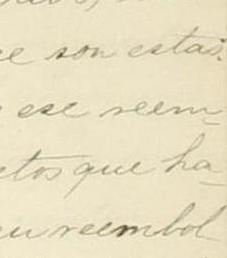 son estas.
ese reem-
que ha-
reembol